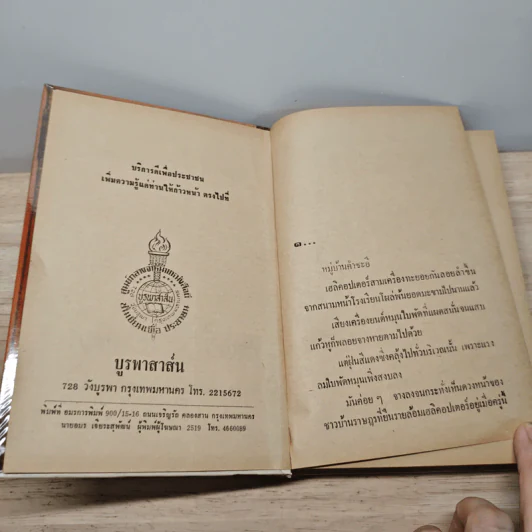 บริการดีเพื่อประชาชน
เพิ่มความรู้แก่ท่านให้ก้าวหน้า ตรงไปที่
บูรพาสาส์น
บูรพาสาส์น
728 วังบูรพา กรุงเทพมหานคร โทร. 2215672
พิมพ์ที่ อมรการพิมพ์ 909/15-16 ถนนเจริญรัถ คลองสาน กรุงเทพมหานคร
นายอมร เจียระสุพัฒน์ ผู้พิมพ์ผู้โฆษณา 2519 โทร. 4660089
๑...
หมู่บ้านคำระยี
เฮลิคอปเตอร์สามเครื่องทะยอยกันลอยลำขึ้น
จากสนามหน้าโรงเรียนโผล่พ้นยอดมะขามไปนานแล้ว
เสียงเครื่องยนต์หมุนใบพัดที่แผดสนั่นจนแสบ
แก้วหูก็พลอยจางหายตามไปด้วย
แต่ฝุ่นสีแดงซึ่งคลุ้งไปทั่วบริเวณนั้น เพราะแรง
ลมใบพัดหมุนเพิ่งสงบลง
มันค่อย ๆ จางลงจนกระทั่งเห็นดวงหน้าของ
ชาวบ้านราษฎรที่ยืนรายล้อมเฮลิคอปเตอร์อยู่เมื่อครู่นี้